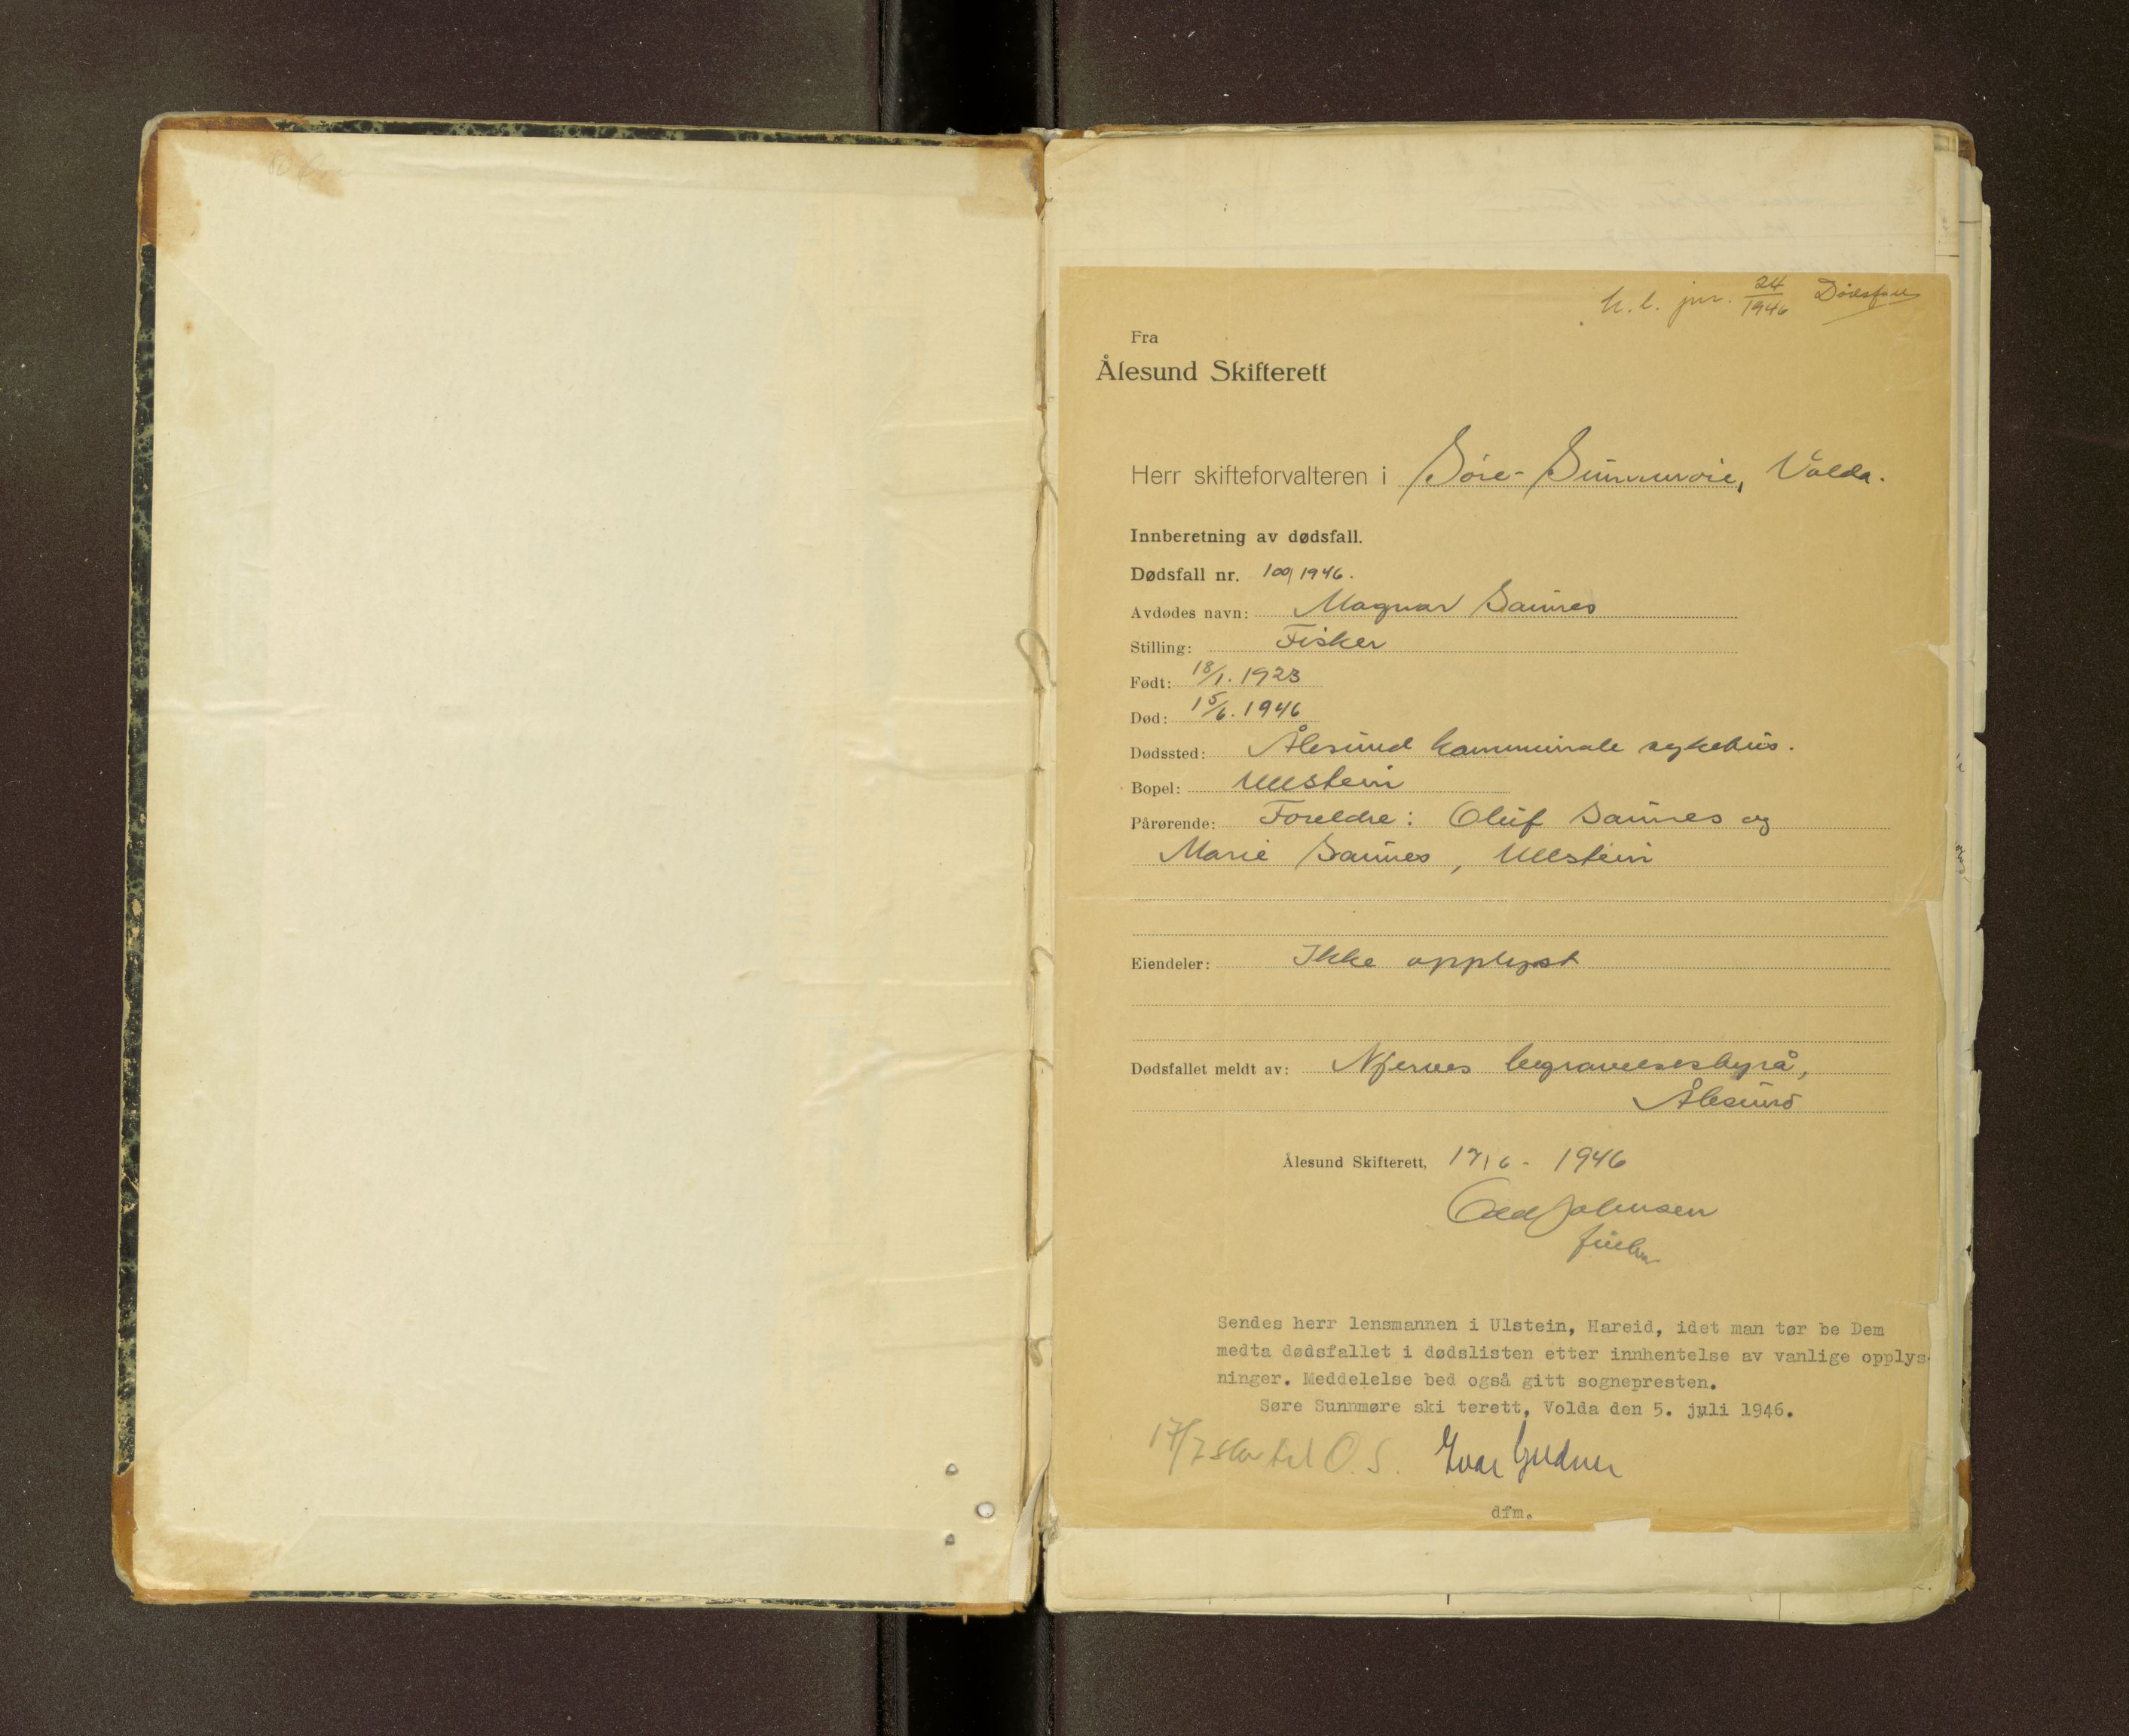 U. l. jnr. 24/1946 Dødsfall
Fra
Ålesund Skifterett
Herr skifteforvalteren i Søre-Sunnmøre, Volda.
Innberetning av dødsfall.
Dødsfall nr. 100/1946.
Avdødes navn: Magnar Saunes
Stilling: Fisker
Født: 18/1. 1923
Død: 15/6. 1946
Dødssted: Ålesund kommunale sykehus.
Bopel: Ulstein
Pårørende: Foreldre: Oluf Saunes og
Marie Saunes, Ulstein
Eiendeler: Ikke opplyst
Dødsfallet meldt av: Nferves begravelsesbyrå,
Ålesund
Ålesund Skifterett, 17/6 - 1946
Odd Johnsen
Sendes herr lensmannen i Ulstein, Hareid, idet man tør be Dem
medta dødsfallet i dødslisten etter innhentelse av vanlige opplys-
ninger. Meddelelse bed også gitt sognepresten.
Søre Sunnmøre ski terett, Volda den 5. juli 1946.
17/7 til O.S. Ivar
dfm.